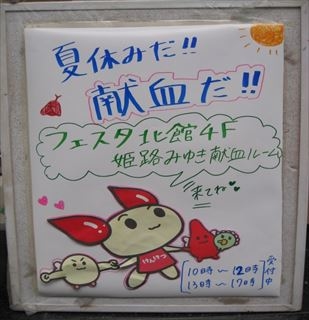 夏休みだ!!
献血だ!!
フェスタ北館4F
姫路みゆき献血ルーム
来てね
けんけつ
10時~12時
13時~17時
受付中